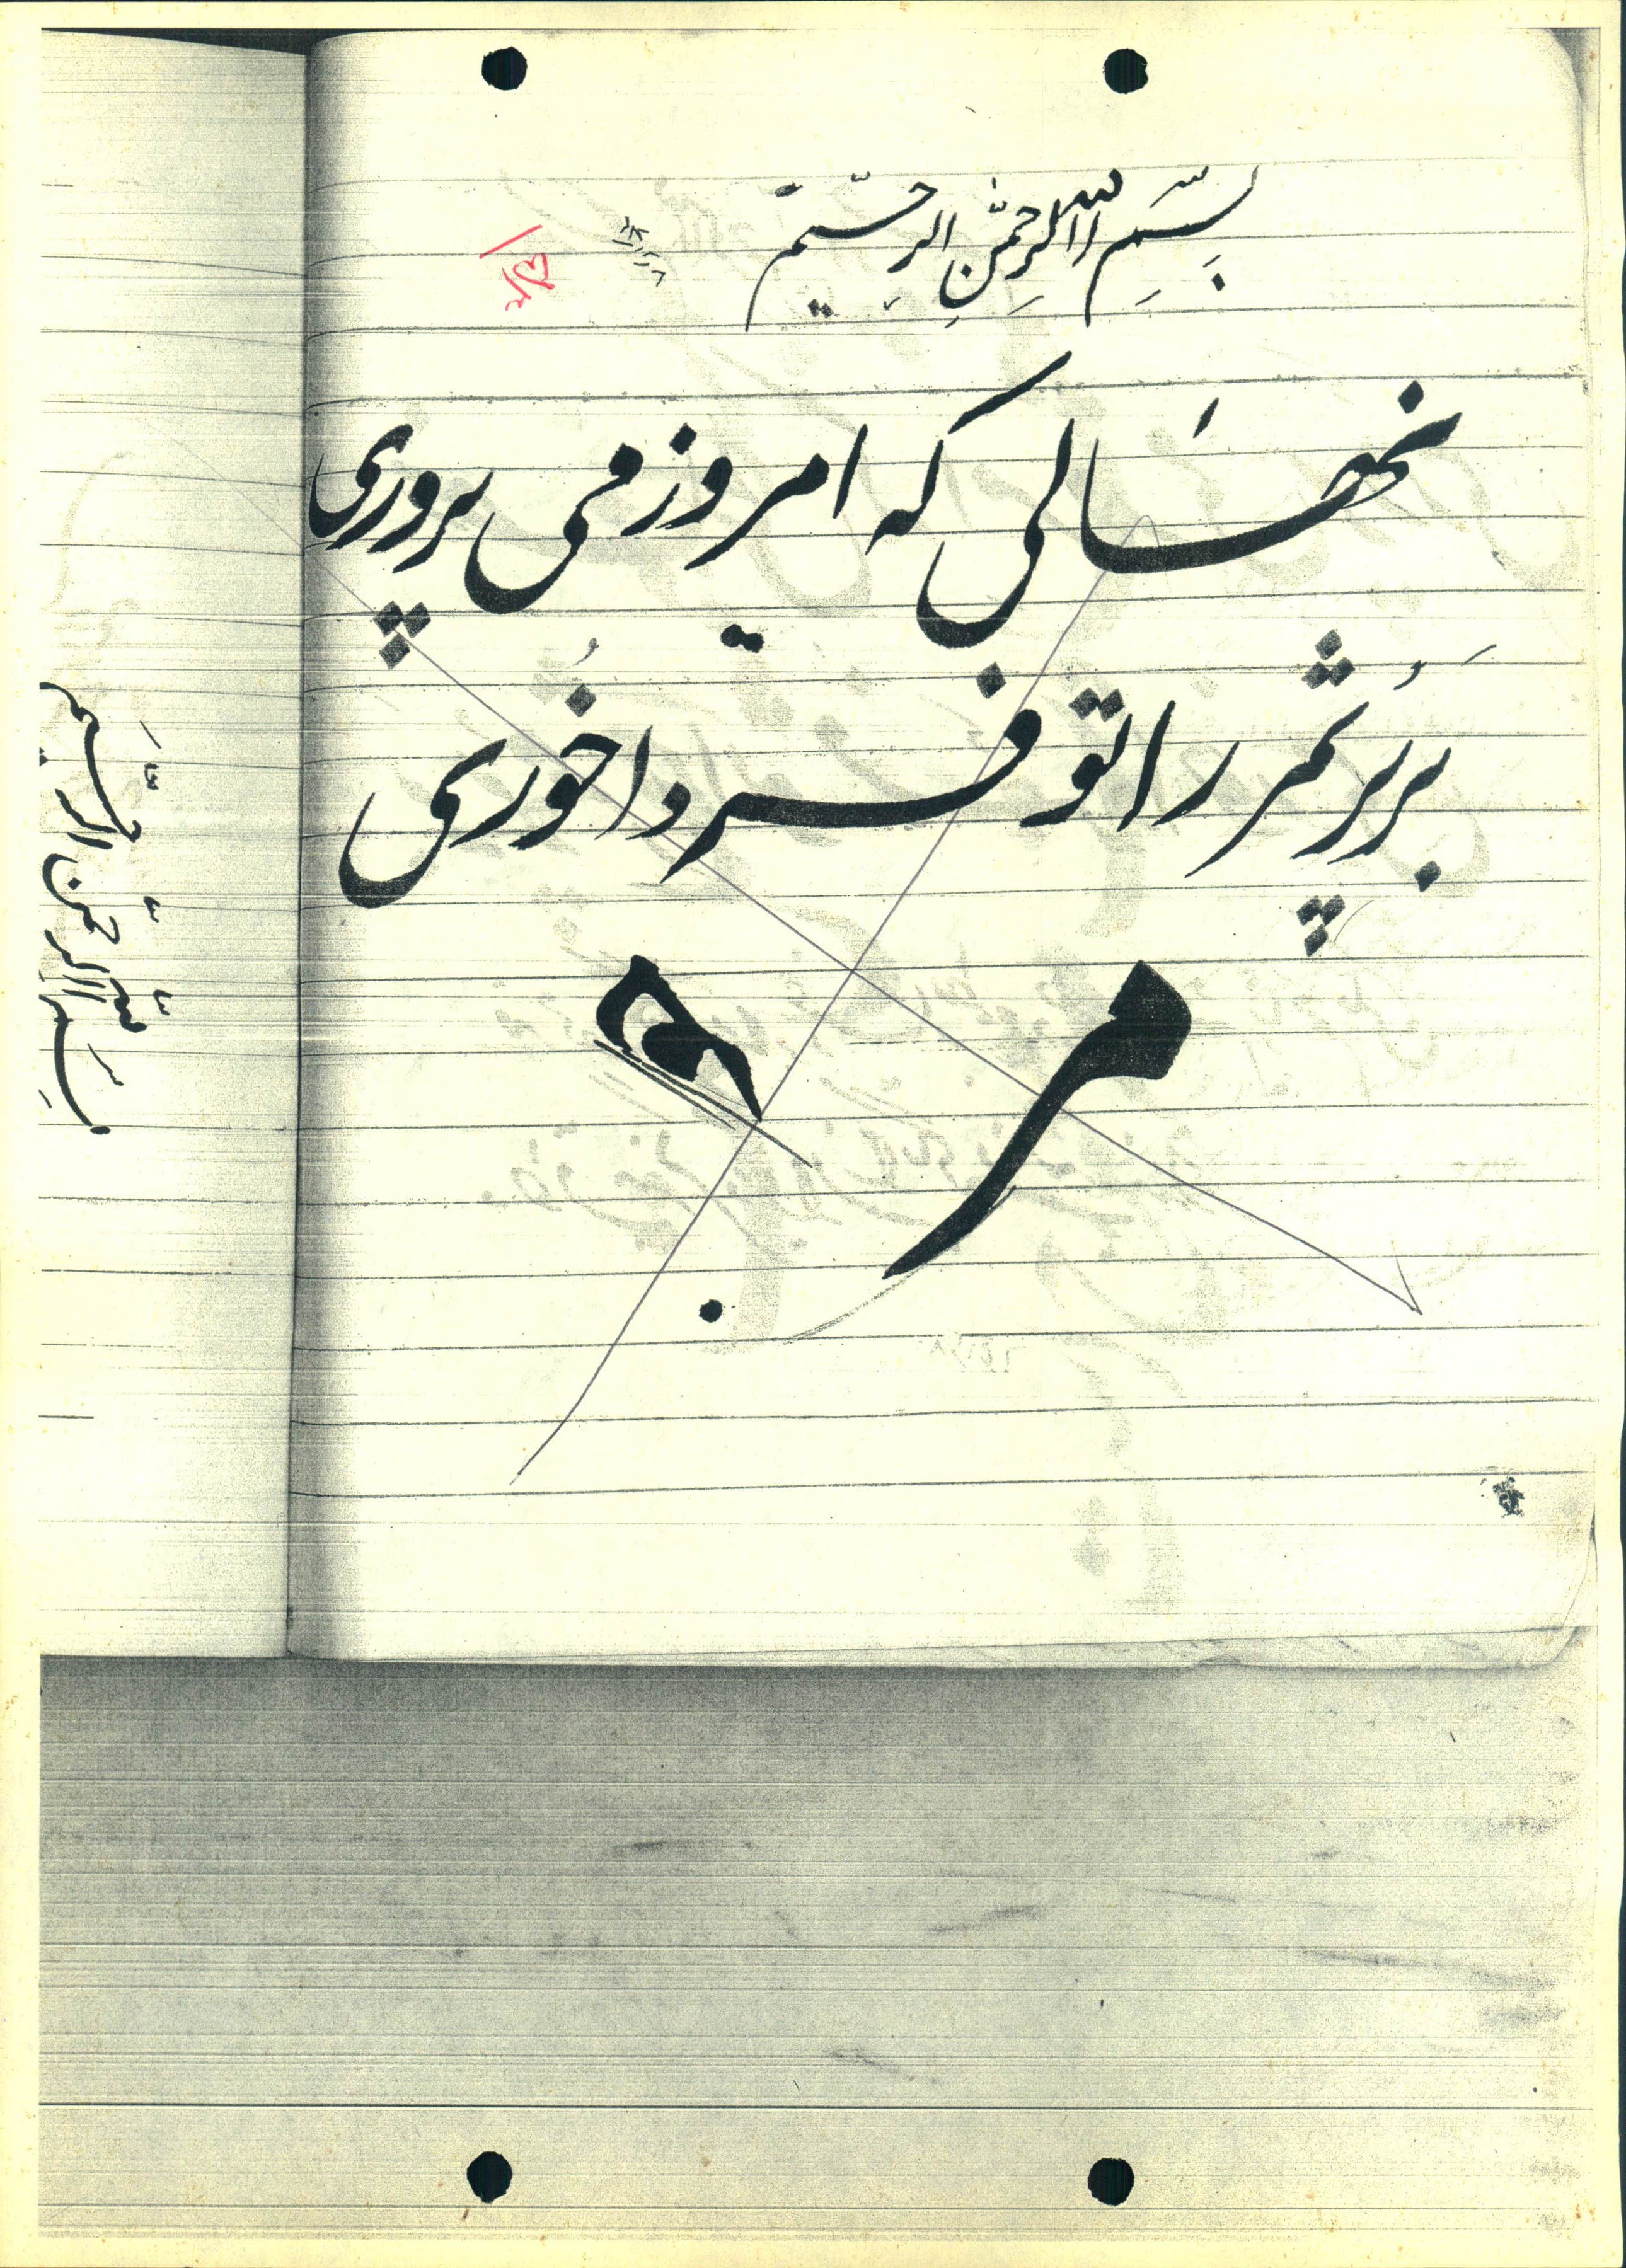 بِسْمِ اللهِ الرَّحْمنِ الرَّحیمِ
نهالی که امروز می پروری
بَرِ پُر ثمر را تو فردا خوری
مر
بسم الله الرحمن الرحیم